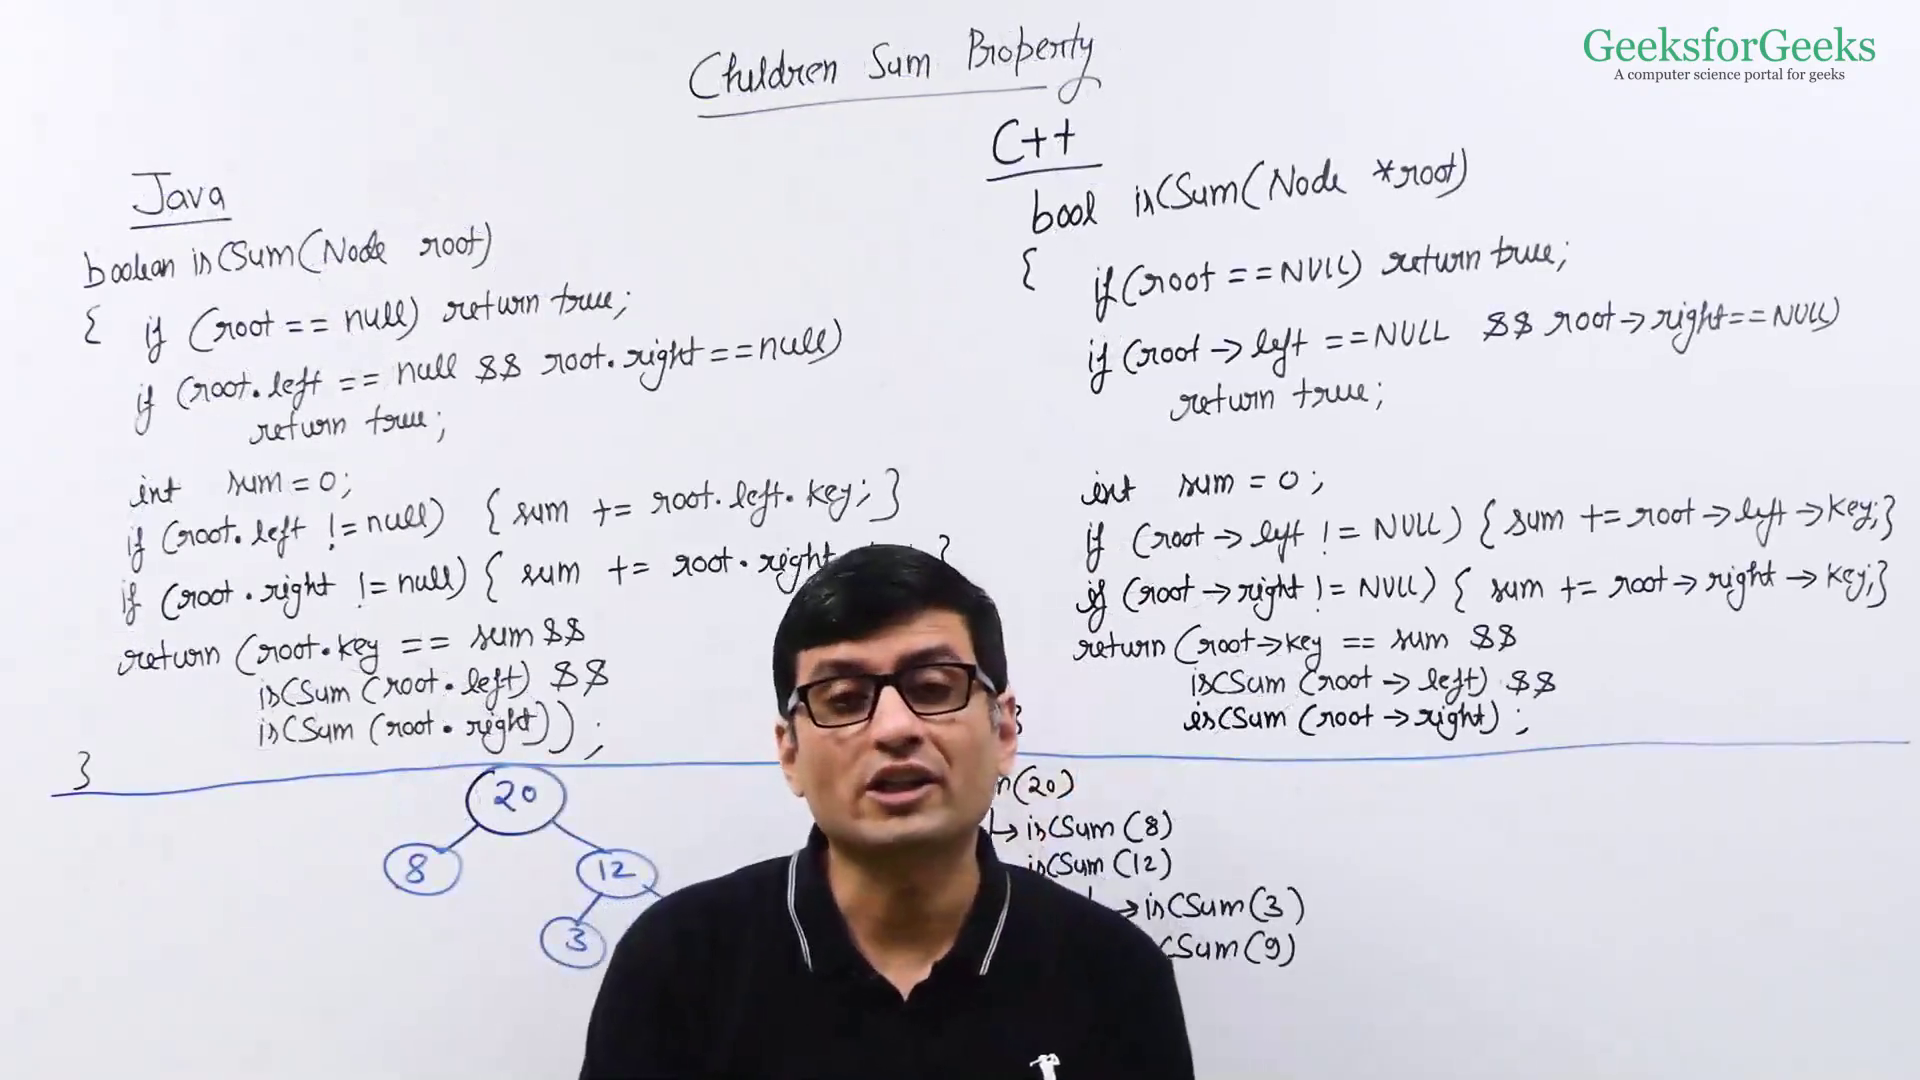 GeeksforGeeks
A computer science portal for geeks
Children Sum Property
Java
boolean isCSum(Node root)
{ if (root == null) return true;
if (root.left == null && root.right == null)
return true;
int sum = 0;
if (root.left != null) { sum += root.left.key; }
if (root.right != null) { sum += root.right }
return (root.key == sum &&
isCSum (root.left) &&
isCSum (root.right));
}
C++
bool isCSum(Node *root)
{ if (root == NULL) return true;
if (root → left == NULL && root → right == NULL)
return true;
int sum = 0;
if (root → left != NULL) { sum += root → left → key; }
if (root → right != NULL) { sum += root → right → key; }
return (root → key == sum &&
isCSum (root → left) &&
isCSum (root → right);
}
20
8
12
3
m(20)
↳ isCSum (8)
isCSum (12)
→ isCSum (3)
CSum (9)